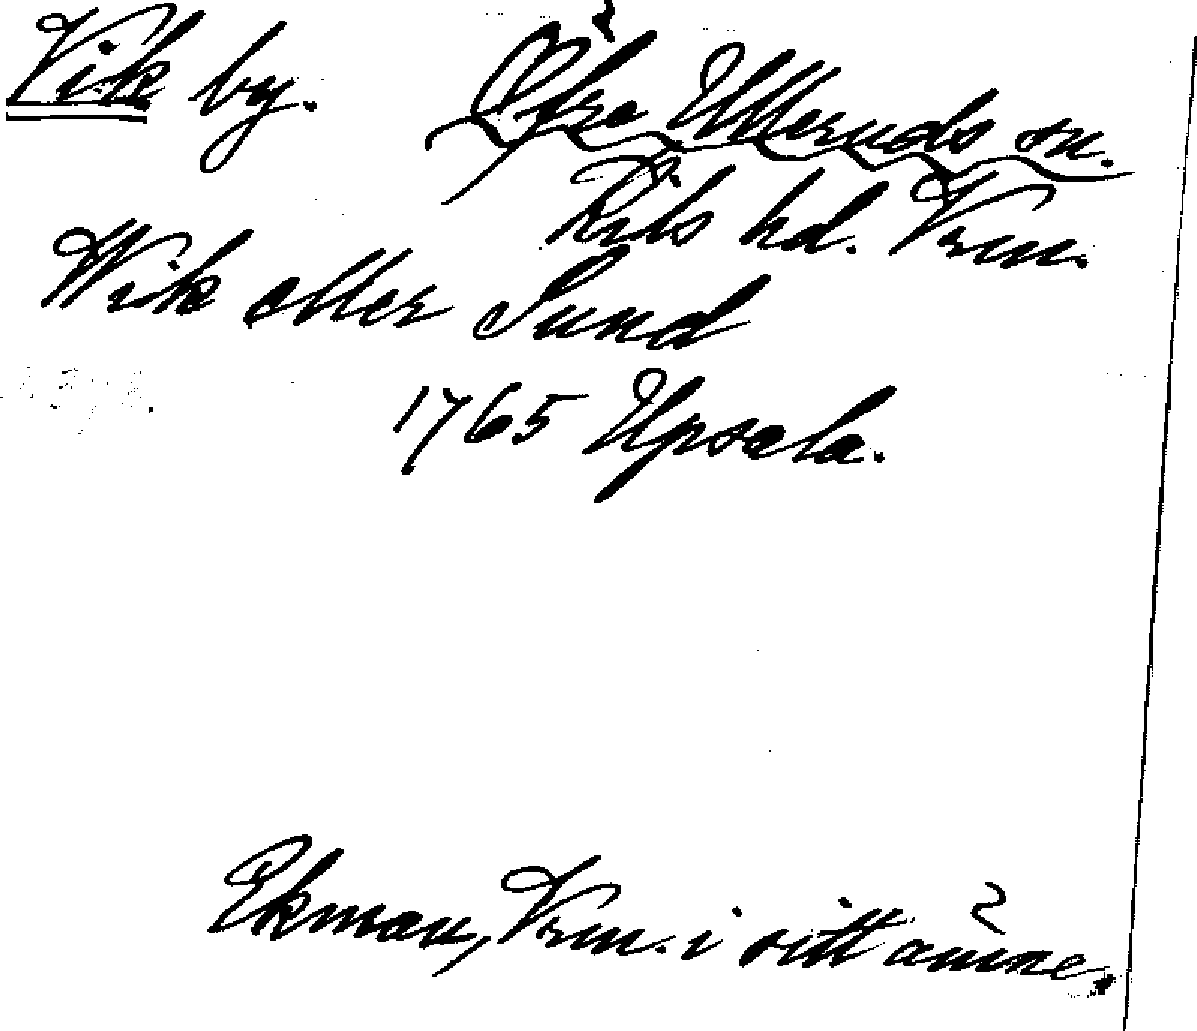 Vik by. Öfre Ulleruds sn.
Kils hd. Vrm.
Wik eller Sund
1765 Upsala.
Ekman, Vrm. i sitt ämne.